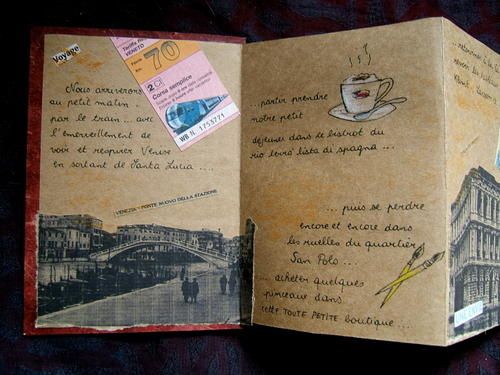 Voyage
VENETO
70
2 Cl
Corsa semplice
WB N. 1753771
Nous arriverons
au petit matin.
par le train... avec
l'émerveillement de
voir et respirer Venise
en sortant de Santa Lucia ....
VENEZIA - PONTE NUOVO DELLA STAZIONE
...partir prendre
notre petit
déjeuner dans le bistrot du
rio terrò lista di spagna...
... puis se perdre
encore et encore dans
les ruelles du quartier
San Polo...
... acheter quelques
pinceaux dans
cette TOUTE PETITE boutique...